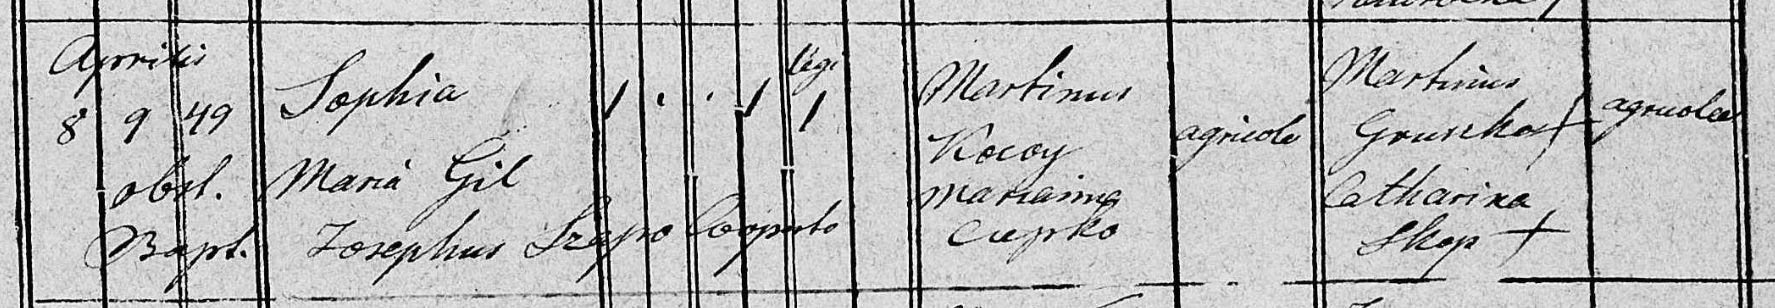 Aprilis
8 9 49 Sophia 1 . . 1 legi 1 Martinus Kocoy agricola Martinus Gruszka + agricolae
obst. Maria Gil Marianna Catharina
Bapt. Josephus Cooperato Skop +